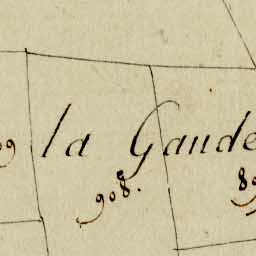 la Gaude
908.